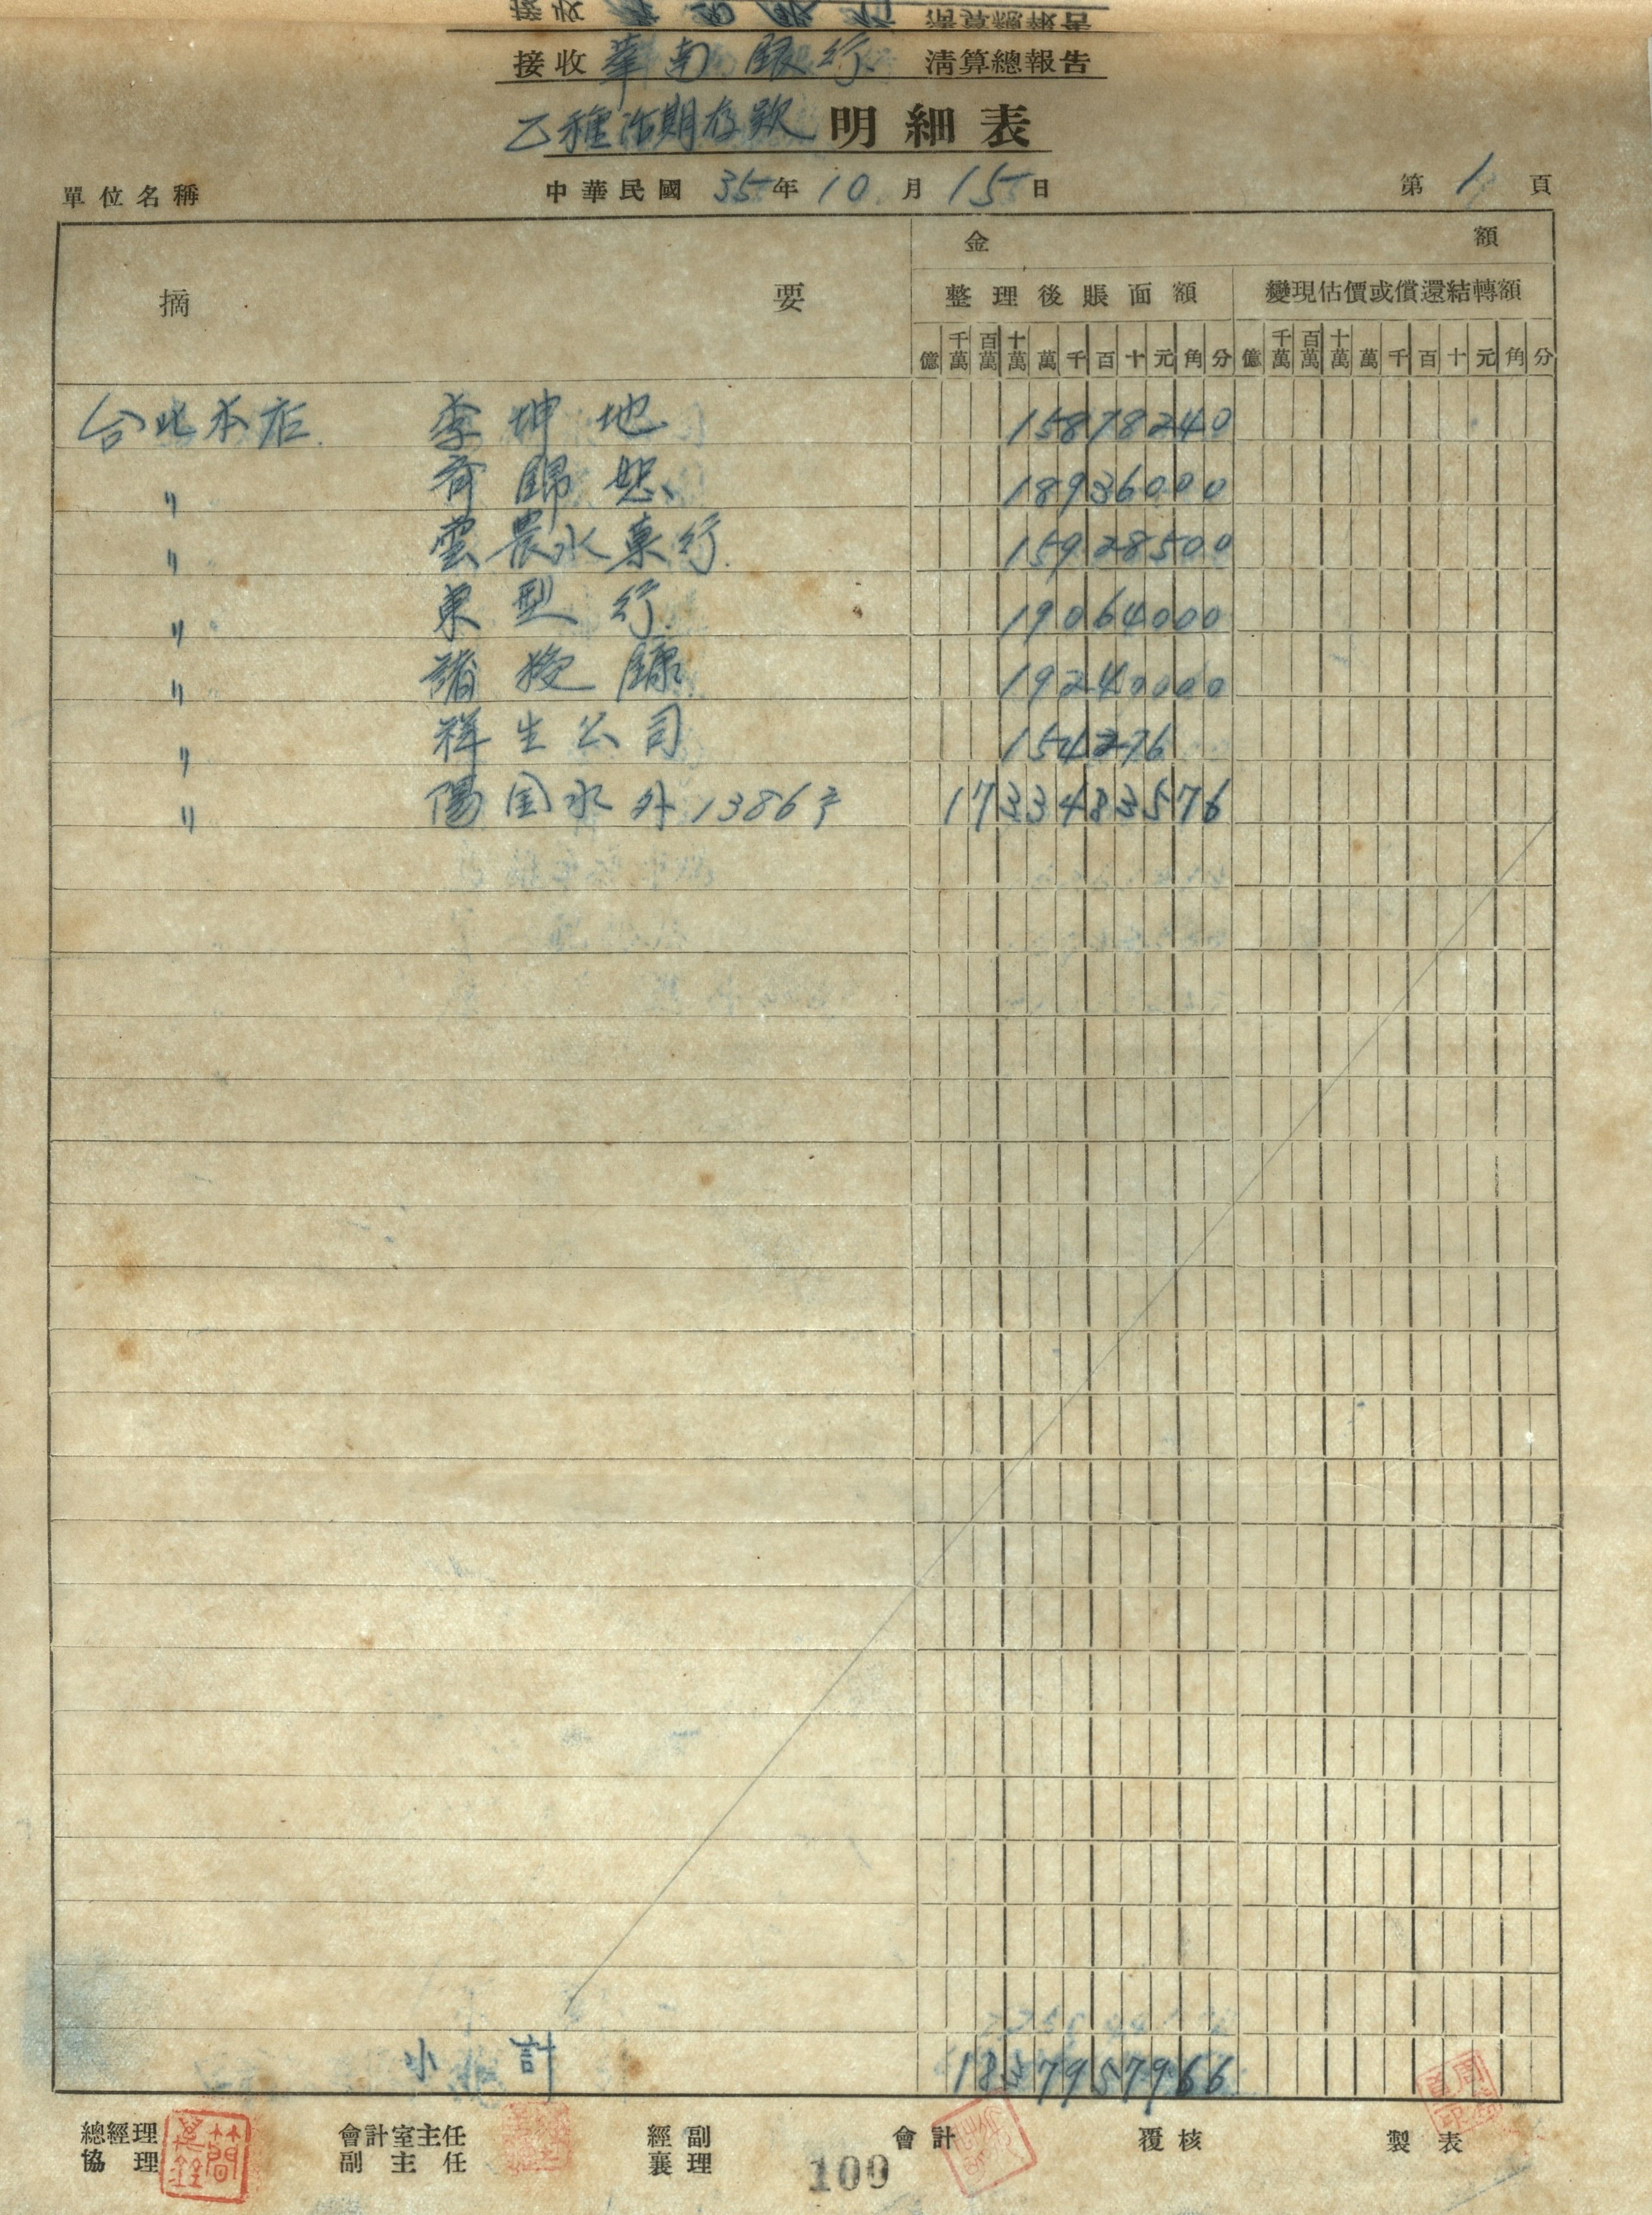 接收 華南銀行 清算總報告
乙種活期存款 明細表
單位名稱 中華民國 35年10月15日 第1頁
金額
摘要 整理後賬面額 變現估價或償還結轉額
億 千萬 百萬 十萬 萬 千 百 十 元 角 分 億 千萬 百萬 十萬 萬 千 百 十 元 角 分
台北本店 李坤地 15878240
〃 18936000
〃 雲農水菓行 15928500
〃 東型行 19064000
〃 19240000
〃 祥生公司
〃 陽国水外1386 1733483576
小計 1857957966
總經理 會計室主任 經副 會計 覆核 製表
協理 副主任 襄理
109